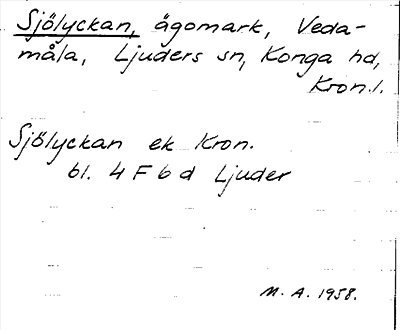 Sjölyckan, ägomark, Veda-
måla, Ljuders sn, Konga hd,
Kron.l.
Sjölyckan ek Kron.
bl. 4 F 6 d Ljuder
M. A. 1958.